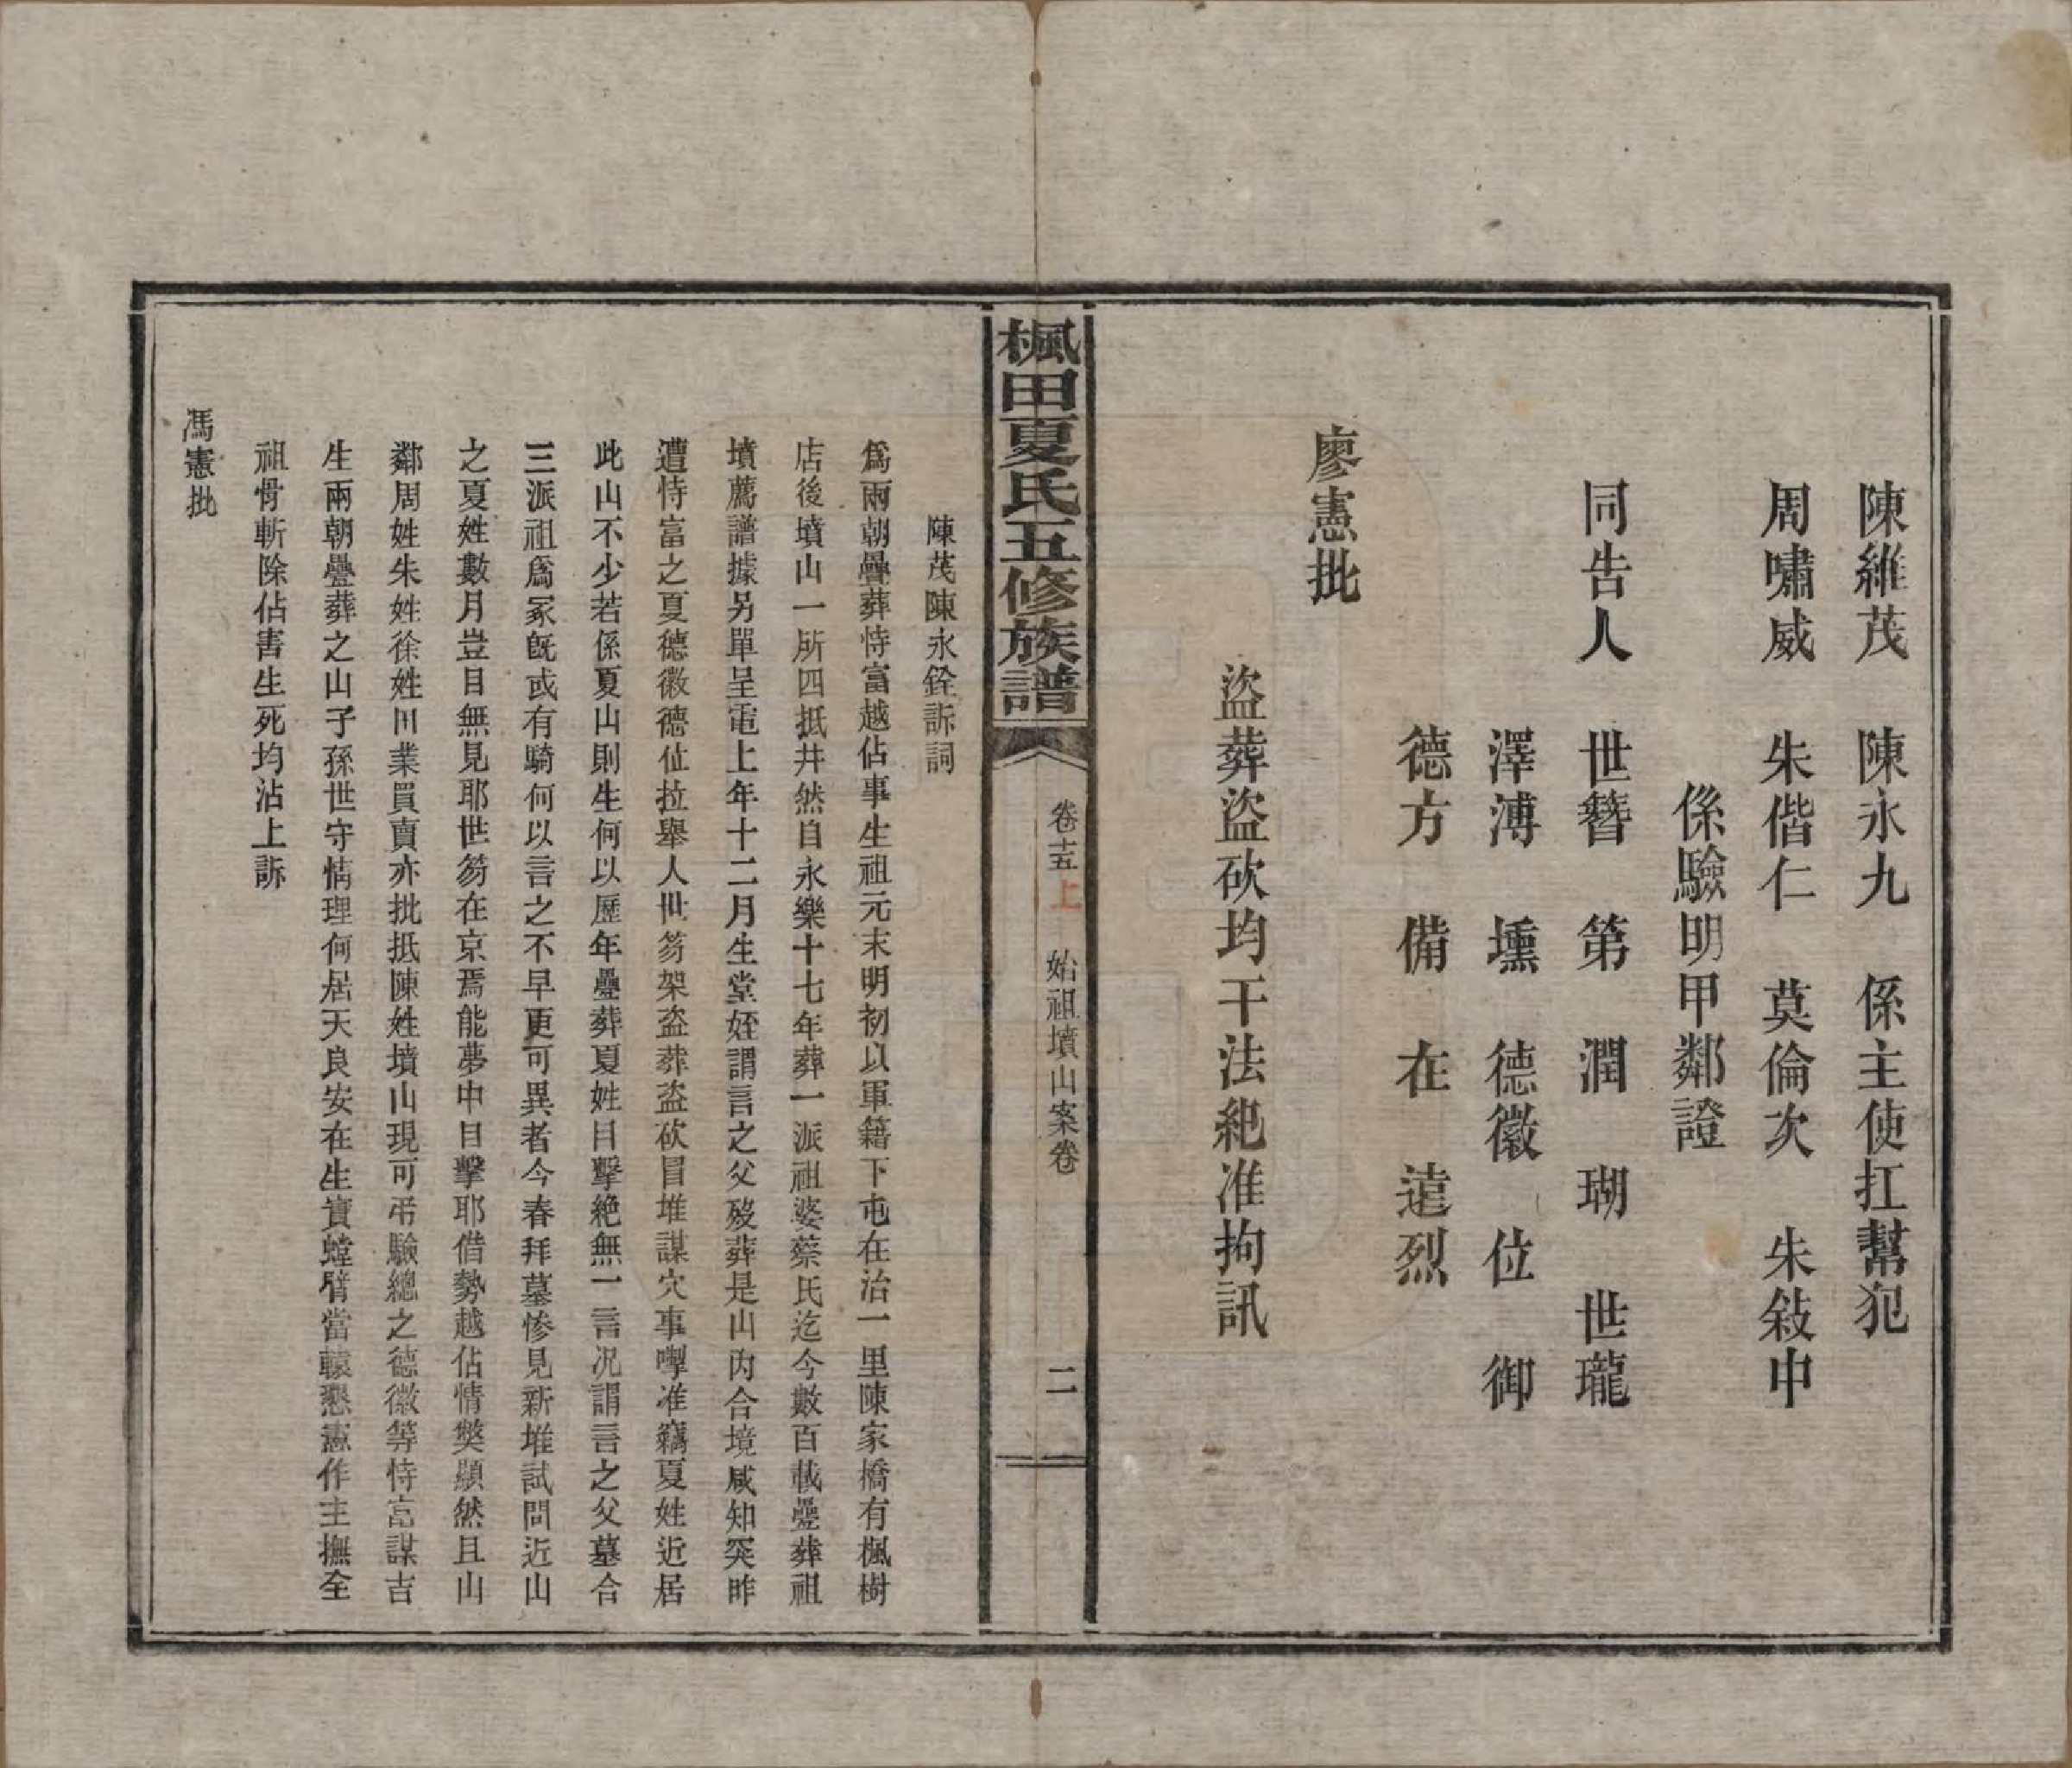 陳維茂　陳永九　係主使扛幫犯
周嘯威　朱偕仁　莫倫次　朱敍中
係驗明甲鄰證
同告人　世簪　第　潤　瑚　世瓏
澤溥　壎　德徽　位　御
德方　備　在　遠烈
廖憲批
盜葬盜砍均干法紀准拘訊
楓田夏氏五修族譜
卷十五上　始祖墳山案卷　二
陳茂陳永銓訴詞
爲兩朝疊葬恃富越佔事生祖元末明初以軍籍下屯在治一里陳家橋有楓樹
店後墳山一所四抵井然自永樂十七年葬一派祖婆蔡氏迄今數百載疊葬祖
墳薦譜據另單呈電上年十二月生堂姪謂言之父歿葬是山內合境咸知突昨
遭恃富之夏德徽德位拉舉人世芴架盜葬盜砍冒堆謀穴事嚲准竊夏姓近居
此山不少若係夏山則生何以歷年疊葬夏姓目擊絶無一言況謂言之父墓合
三派祖爲冢旣或有騎何以言之不早更可異者今春拜墓慘見新堆試問近山
之夏姓數月豈目無見耶世芴在京焉能夢中目擊耶借勢越佔情獘顯然且山
鄰周姓朱姓徐姓田業買賣亦批抵陳姓墳山現可弔驗總之德徽等恃富謀吉
生兩朝疊葬之山子孫世守情理何居天良安在生實螳臂當轅懇憲作主撫全
祖骨斬除佔害生死均沾上訴
馮憲批